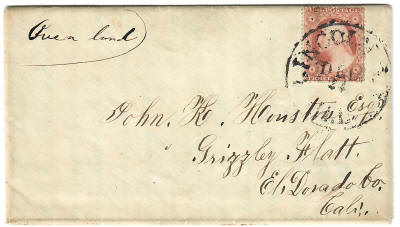 Over land
LINCOLN
DEC
John. H. Houston Esq
Grizzley Flatt.
El. Dorado Co.
Cali.